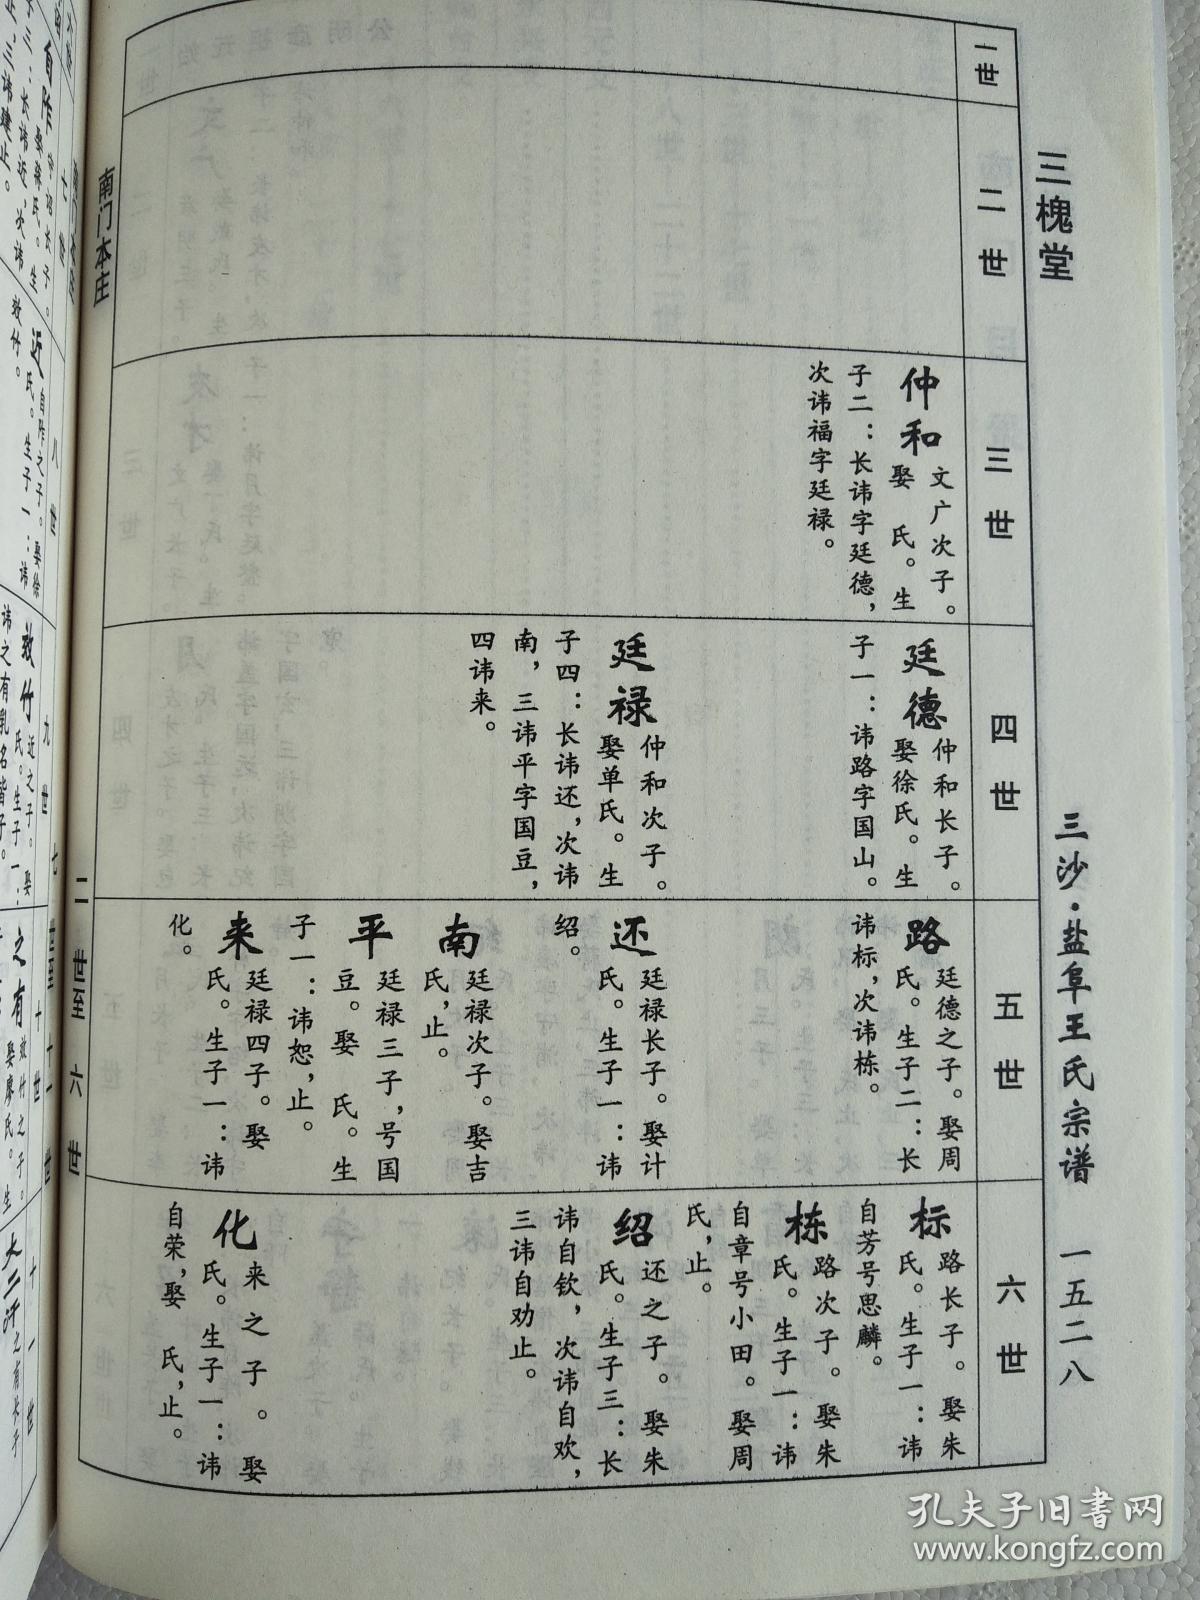 三槐堂
三沙·盐阜王氏宗谱
一五二八
一世
二世
三世
四世
五世
六世
仲和
文广次子。
娶 氏。生
子二：长讳字廷德，
次讳福字廷禄。
廷德
仲和长子。
娶徐氏。生
子一：讳路字国山。
廷禄
仲和次子。
娶单氏。生
子四：长讳还，次讳
南，三讳平字国豆，
四讳来。
路
廷德之子。娶周
氏。生子二：长
讳标，次讳栋。
还
廷禄长子。娶计
氏。生子一：讳
绍。
南
廷禄次子。娶吉
氏，止。
平
廷禄三子，号国
豆。娶 氏。生
子一：讳恕，止。
来
廷禄四子。娶
氏。生子一：讳
化。
标
路长子。娶朱
氏。生子一：讳
自芳号思麟。
栋
路次子。娶朱
氏。生子一：讳
自章号小田。娶周
氏，止。
绍
还之子。娶朱
氏。生子三：长
讳自钦，次讳自欢，
三讳自劝止。
化
来之子。娶
氏。生子一：讳
自荣，娶 氏，止。
南门本庄
二世至六世
七世
八世
九世
十世
十一世
七世至十一世
自阼
字诏长子。
娶梁氏。生
子三：长讳近，次讳
止，三讳建止。
近
自阼之子。娶徐
氏。生子一：讳
效竹。
效竹
近之子。娶
氏。生子一：
讳之有乳名皆子。
之有
效竹之子。
娶廖氏。生
大二汗
之有长子
孔夫子旧书网
www.kongfz.com